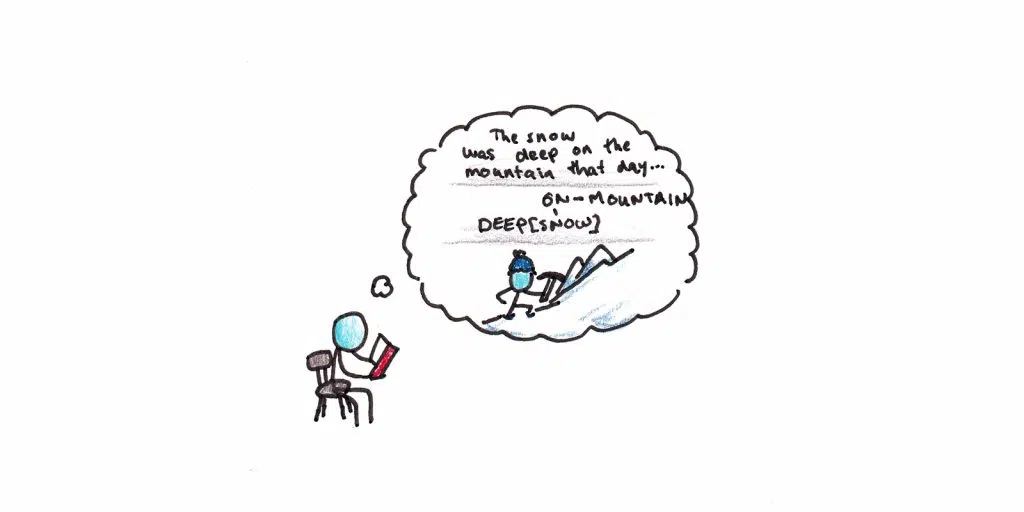 The snow
was deep on the
mountain that day...
ON-MOUNTAIN
DEEP[SNOW]